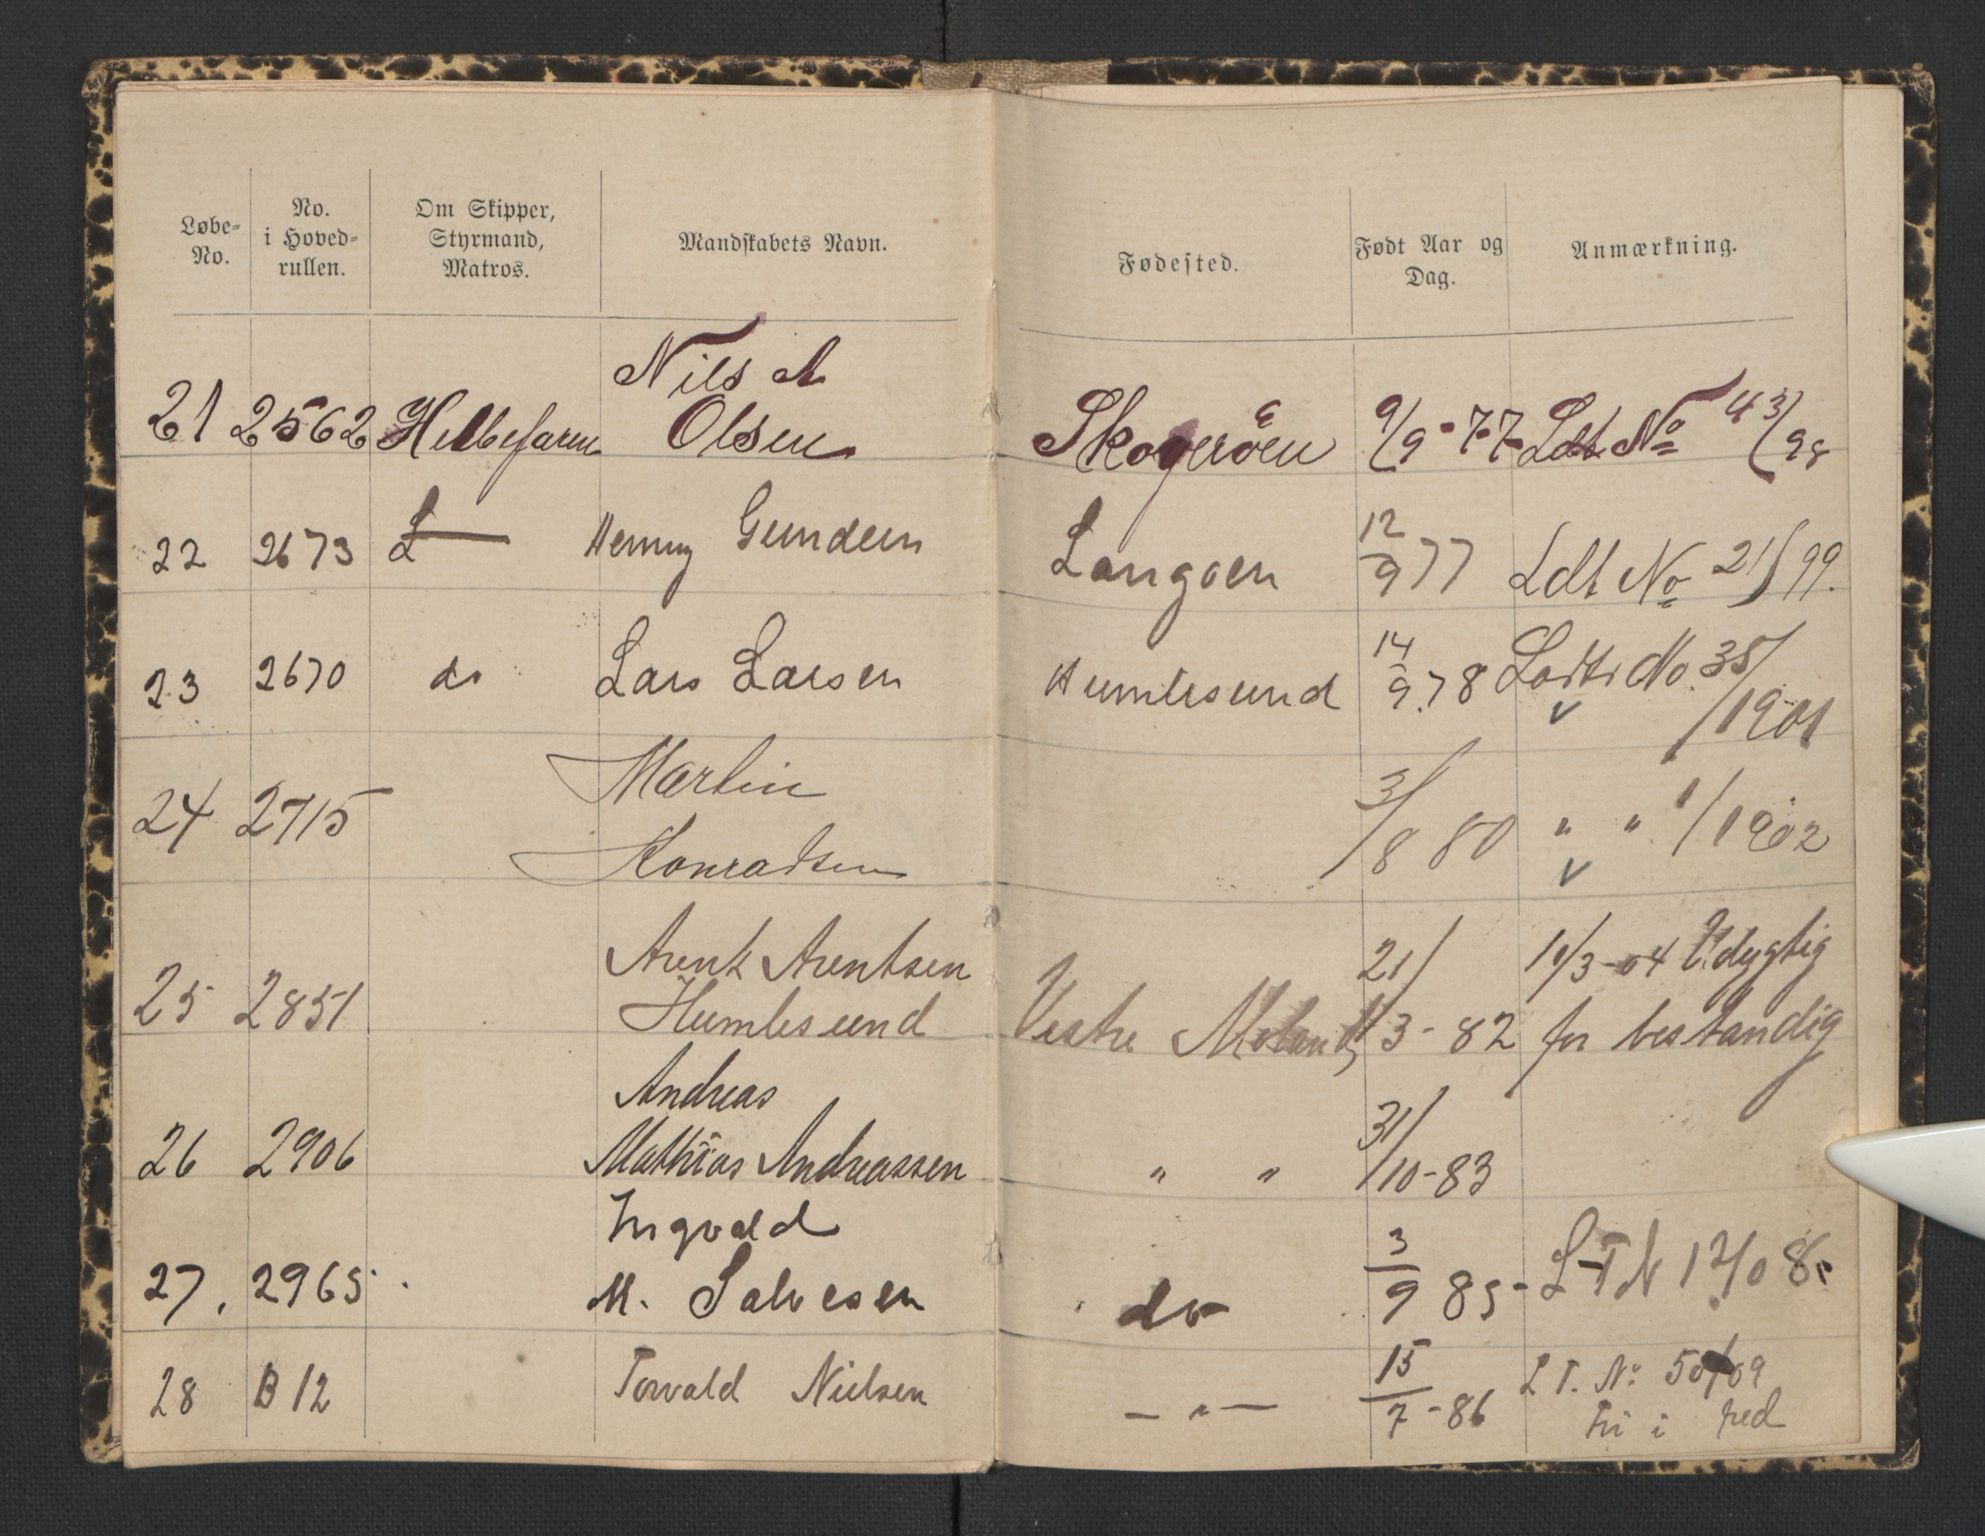 Løbe-No.
No. i Hoved-rullen.
Om Skipper, Styrmand, Matros.
Mandskabets Navn.
Fødested.
Født Aar og Dag.
Anmærkning.
Nils A
21 2562 Helbefaren Olsen Skogerøen 9/9-77 Ldt No 43/98
22 2673 Henny Gundersen Langøen 12/9 77 Ldt No 21/99.
23 2670 do Lars Larsen Humlesund 14/9 78 No. 35/1901
Martin
24 2715 Konradsen 3/8 80 " " 1/1902
Arent Arentsen
25 2851 Humlesund Vestre Moland 21/3-82 10/3-04 Udygtig for bestandig
Andreas
26 2906 Mathias Andreassen " " 31/10-83
Ingvald
27. 2965 M. Salvesen do 3/9 85- L T N 12/08.
28 B 12 Torvald Nielsen — " — 15/7-86 L T. No 50/09
Fri i fred